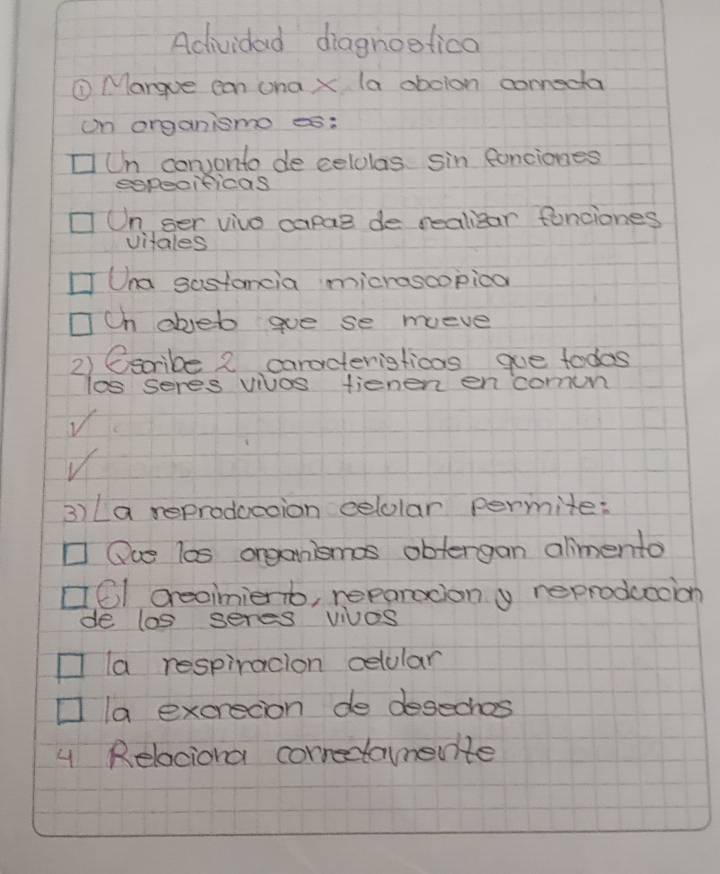 Actividad diagnostica
① Marque con una x la obcion correcta
un organismo es:
□ Un conjonto de celulas sin funciones
especificas
□ Un ser vivo capaz de realizar funciones
vitales
□ Una sustancia microscopica
□ Un objeto que se mueve
2) Escribe 2 caracteristicas que todos
los seres vivos tienen en comun
✓
✓
3) La reproduccion celular permite:
□ Que los organismos obtengan alimento
□ El crecimiento, reparacion y reproduccion
de los seres vivos
□ la respiracion celular
□ la excrecion de desechos
4 Relaciona correctamente